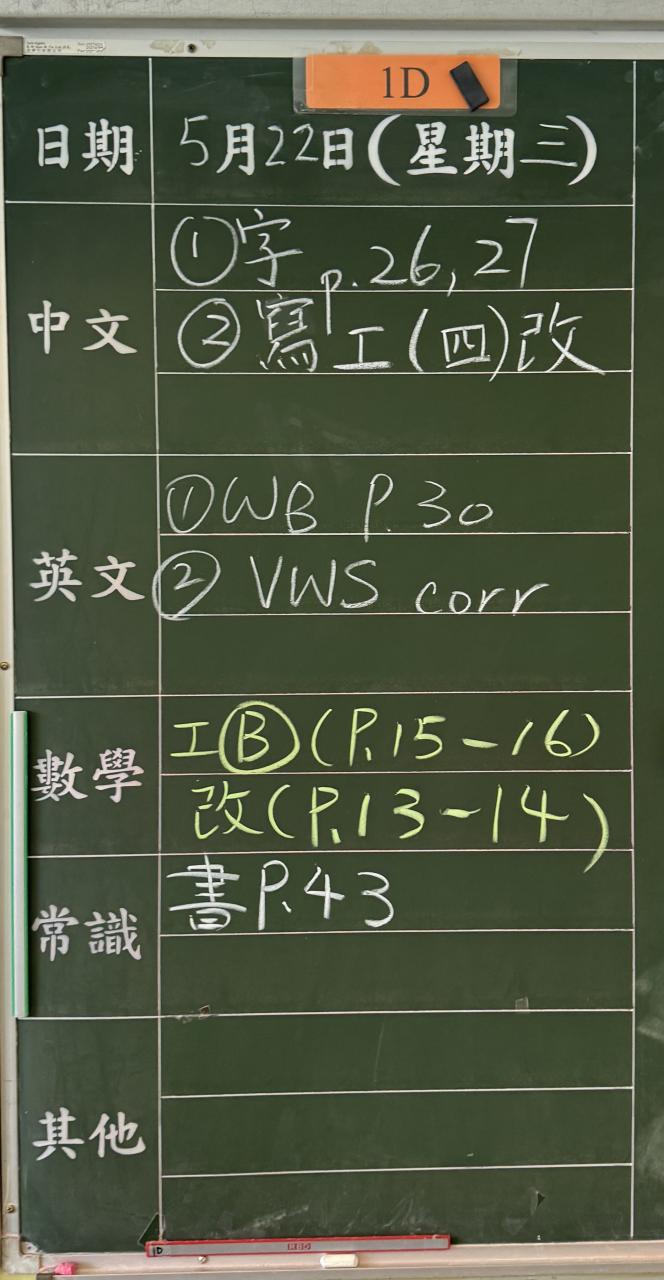 1D
日期 5月22日(星期三)
中文 ①字 p.26,27
②寫工(四)改
英文 ①WB P.30
② VWS corr
數學 工Ⓑ(P.15-16)
改(P.13-14)
常識 書P.43
其他